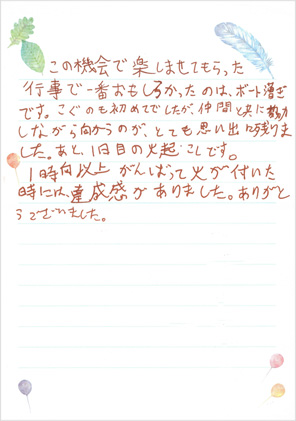 この機会で楽しませてもらった
行事で一番おもしろかったのは、ボート漕ぎ
です。こぐのも初めてでしたが、仲間と共に
しながら向かうのが、とても思い出に残りま
した。あと、1日目の火起こしです。
1時間以上がんばって火が付いた
時には、達成感がありました。ありがと
うございました。